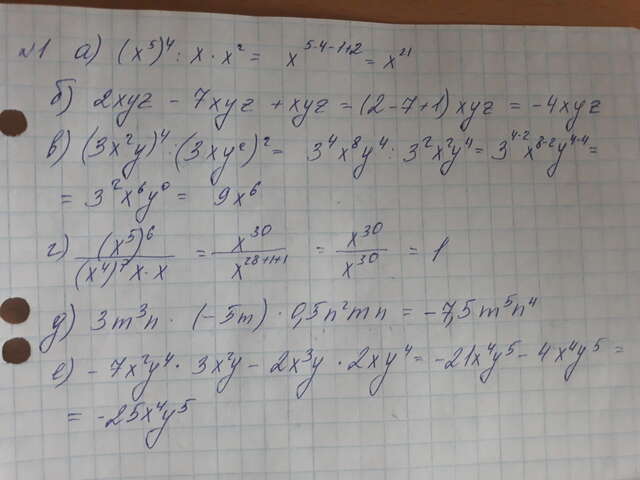 №1 а) (x⁵)⁴ : x · x² = x⁵·⁴⁻¹⁺² = x²¹
б) 2xyz - 7xyz + xyz = (2-7+1) xyz = -4xyz
в) (3x²y)⁴ : (3xy²)² = 3⁴x⁸y⁴ : 3²x²y⁴ = 3⁴⁻²x⁸⁻²y⁴⁻⁴ =
= 3²x⁶y⁰ = 9x⁶
г) (x⁵)⁶/(x⁴)⁷x·x = x³⁰/x²⁸⁺¹⁺¹ = x³⁰/x³⁰ = 1
д) 3m³n · (-5m) · 0,5n²mn = -7,5m⁵n⁴
е) -7x²y⁴ · 3x²y - 2x³y · 2xy⁴ = -21x⁴y⁵ - 4x⁴y⁵ =
= -25x⁴y⁵